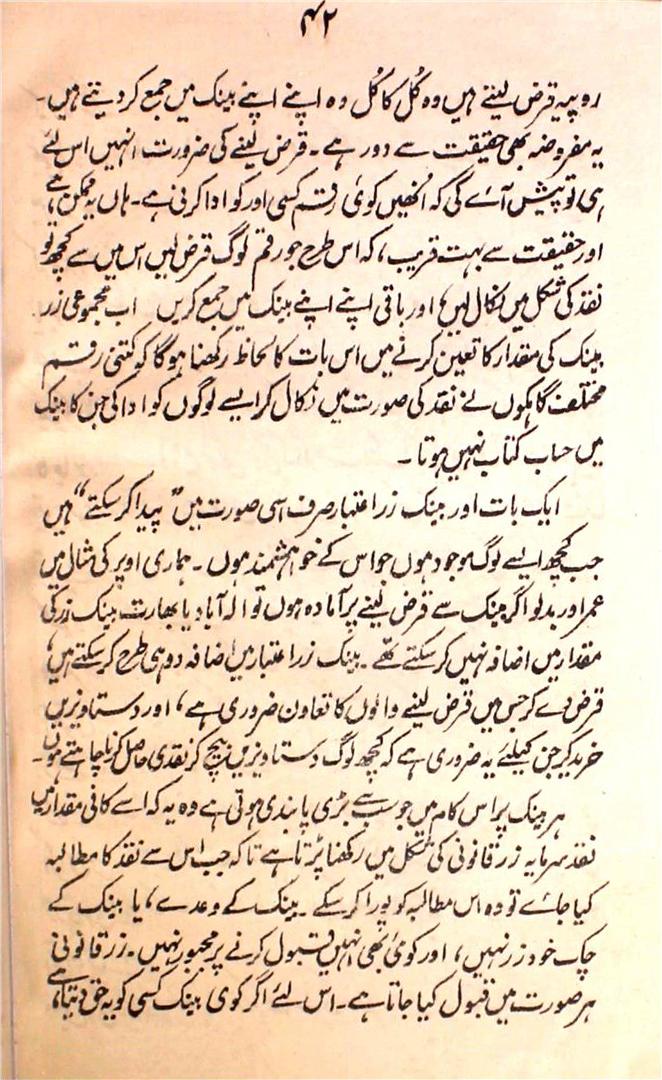 ۴۲
روپیہ قرض لیتے ہیں وہ کُل کا کُل وہ اپنے اپنے بینک میں جمع کر دیتے ہیں۔
یہ مفروضہ بھی حقیقت سے دور ہے۔ قرض لینے کی ضرورت انہیں اس لئے
ہی تو پیش آئے گی کہ اُنھیں کوئی رقم کسی اور کو ادا کرنی ہے۔ ہاں یہ ممکن ہے،
اور حقیقت سے بہت قریب، کہ اس طرح جو رقم لوگ قرض لیں اس میں سے کچھ تو
نقد کی شکل میں نکال لیں، اور باقی اپنے اپنے بینک میں جمع کریں اب مجموعی زر
بینک کی مقدار کا تعین کرنے میں اس بات کا لحاظ رکھنا ہوگا کہ کتنی رقم
مختلف گاہکوں نے نقد کی صورت میں نکال کر ایسے لوگوں کو ادا کی جن کا بینک
میں حساب کتاب نہیں ہوتا۔
ایک بات اور بینک زر اعتبار صرف اسی صورت میں "پیدا کر سکتے" ہیں
جب کچھ ایسے لوگ موجود ہوں جو اس کے خواہشمند ہوں۔ ہماری اوپر کی مثال میں
عمر اور بدلو اگر بینک سے قرض لینے پر آمادہ ہوں تو الہ آباد یا بھارت بینک زر کی
مقدار میں اضافہ نہیں کر سکتے تھے۔ بینک زر اعتبار میں اضافہ دو ہی طرح کر سکتے ہیں،
قرض دے کر جس میں قرض لینے والوں کا تعاون ضروری ہے، اور دستاویزیں
خرید کر جن کیلئے یہ ضروری ہے کہ کچھ لوگ دستاویزیں بیچ کر نقدی حاصل کرنا چاہتے ہوں۔
ہر بینک پر اس کام میں جو سب سے بڑی پابندی ہوتی ہے وہ یہ کہ اسے کافی مقدار میں
نقد سرمایہ زر قانونی کی شکل میں رکھنا پڑتا ہے تاکہ جب اس سے نقد کا مطالبہ
کیا جائے تو وہ اس مطالبہ کو پورا کر سکے۔ بینک کے وعدے، یا بینک کے
چک خود زر نہیں، اور کوئی بھی انہیں قبول کرنے پر مجبور نہیں۔ زر قانونی
ہر صورت میں قبول کیا جاتا ہے۔ اس لئے اگر کوئی بینک کسی کو یہ حق دیتا ہے،